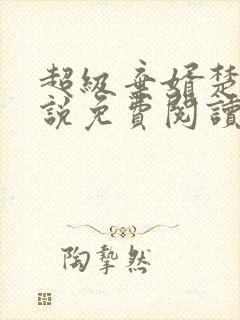 超級棄婿楚
說免費閱讀
陶摯然